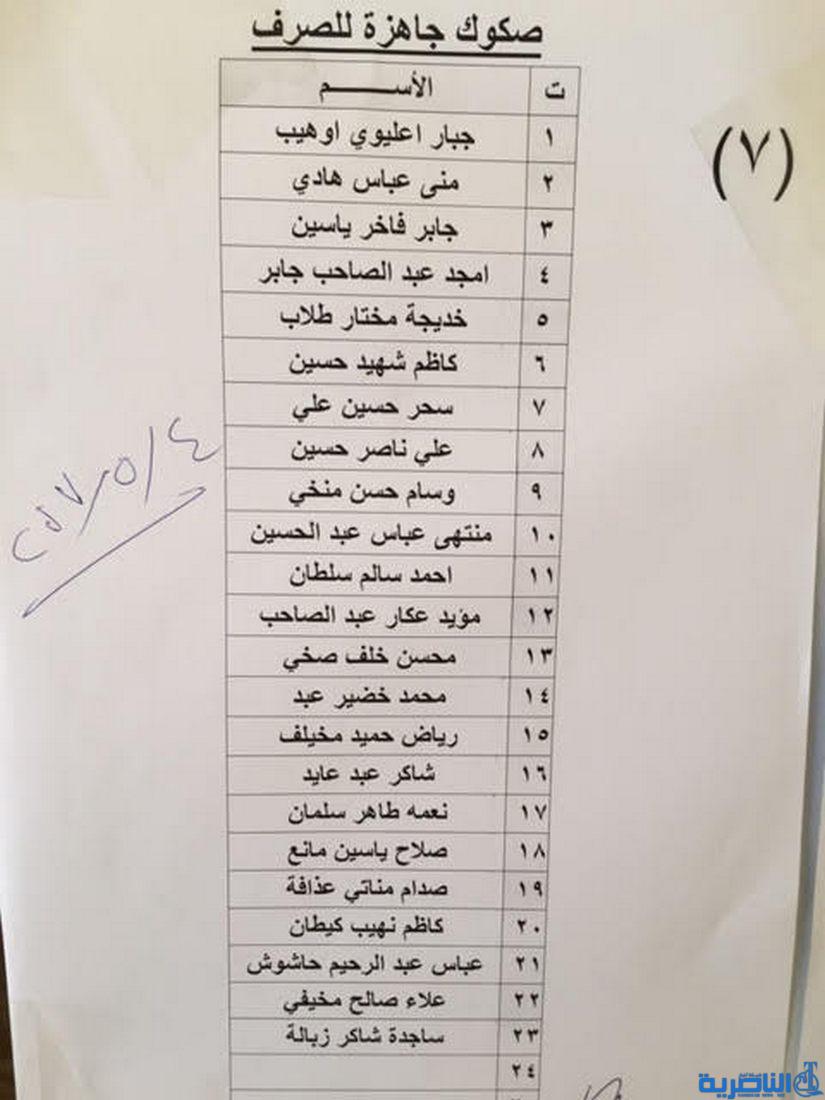 صكوك جاهزة للصرف
(٧)
ت الأســـــــم
١ جبار اعليوي اوهيب
٢ منى عباس هادي
٣ جابر فاخر ياسين
٤ امجد عبد الصاحب جابر
٥ خديجة مختار طلاب
٦ كاظم شهيد حسين
٧ سحر حسين علي
٨ علي ناصر حسين
٩ وسام حسن منخي
١٠ منتهى عباس عبد الحسين
١١ احمد سالم سلطان
١٢ مؤيد عكار عبد الصاحب
١٣ محسن خلف صخي
١٤ محمد خضير عبد
١٥ رياض حميد مخيلف
١٦ شاكر عبد عايد
١٧ نعمه طاهر سلمان
١٨ صلاح ياسين مانع
١٩ صدام مناتي عذافة
٢٠ كاظم نهيب كيطان
٢١ عباس عبد الرحيم حاشوش
٢٢ علاء صالح مخيفي
٢٣ ساجدة شاكر زبالة
٢٤
٢٠١٧/٥/٤
الناصرية